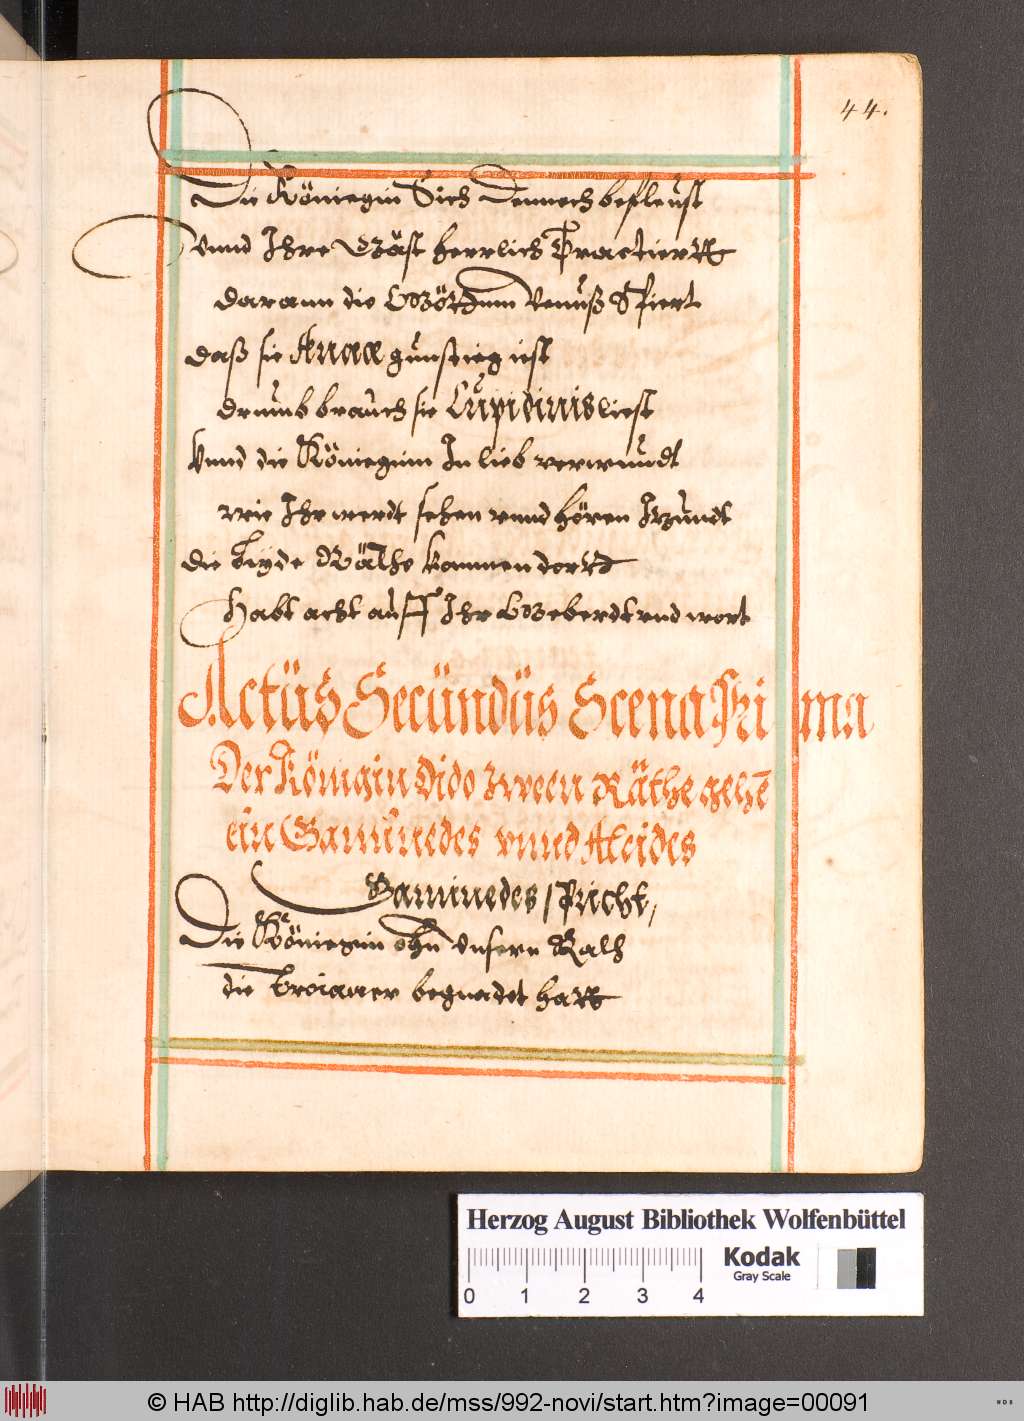 44.
Die Köniegin Sich Dennoch befleust
vnnd Ihre Gäst herrlich Tractiertt
darann die Göttinn Venuß Spiert
daß sie Aneæ günstieg ist
drumb brauch sie Cupidinis liest
Vnnd die Königinn In lieb verwundt
wie Ihr werdt sehen vnnd hören Itzundt
die beyde Räthe kommen dortt
Habt acht auff Ihr Geberdt vnd wort
Actus Secundus Scena Prima
Der Königin Dido zween Räthe gehē
ein Gaminedes vnnd Alcides
Gaminedes spricht,
Die Köniegin ohn vnsern Rath
die Troianer begnadet hatt
Herzog August Bibliothek Wolfenbüttel
Kodak
Gray Scale
0 1 2 3 4
© HAB http://diglib.hab.de/mss/992-novi/start.htm?image=00091